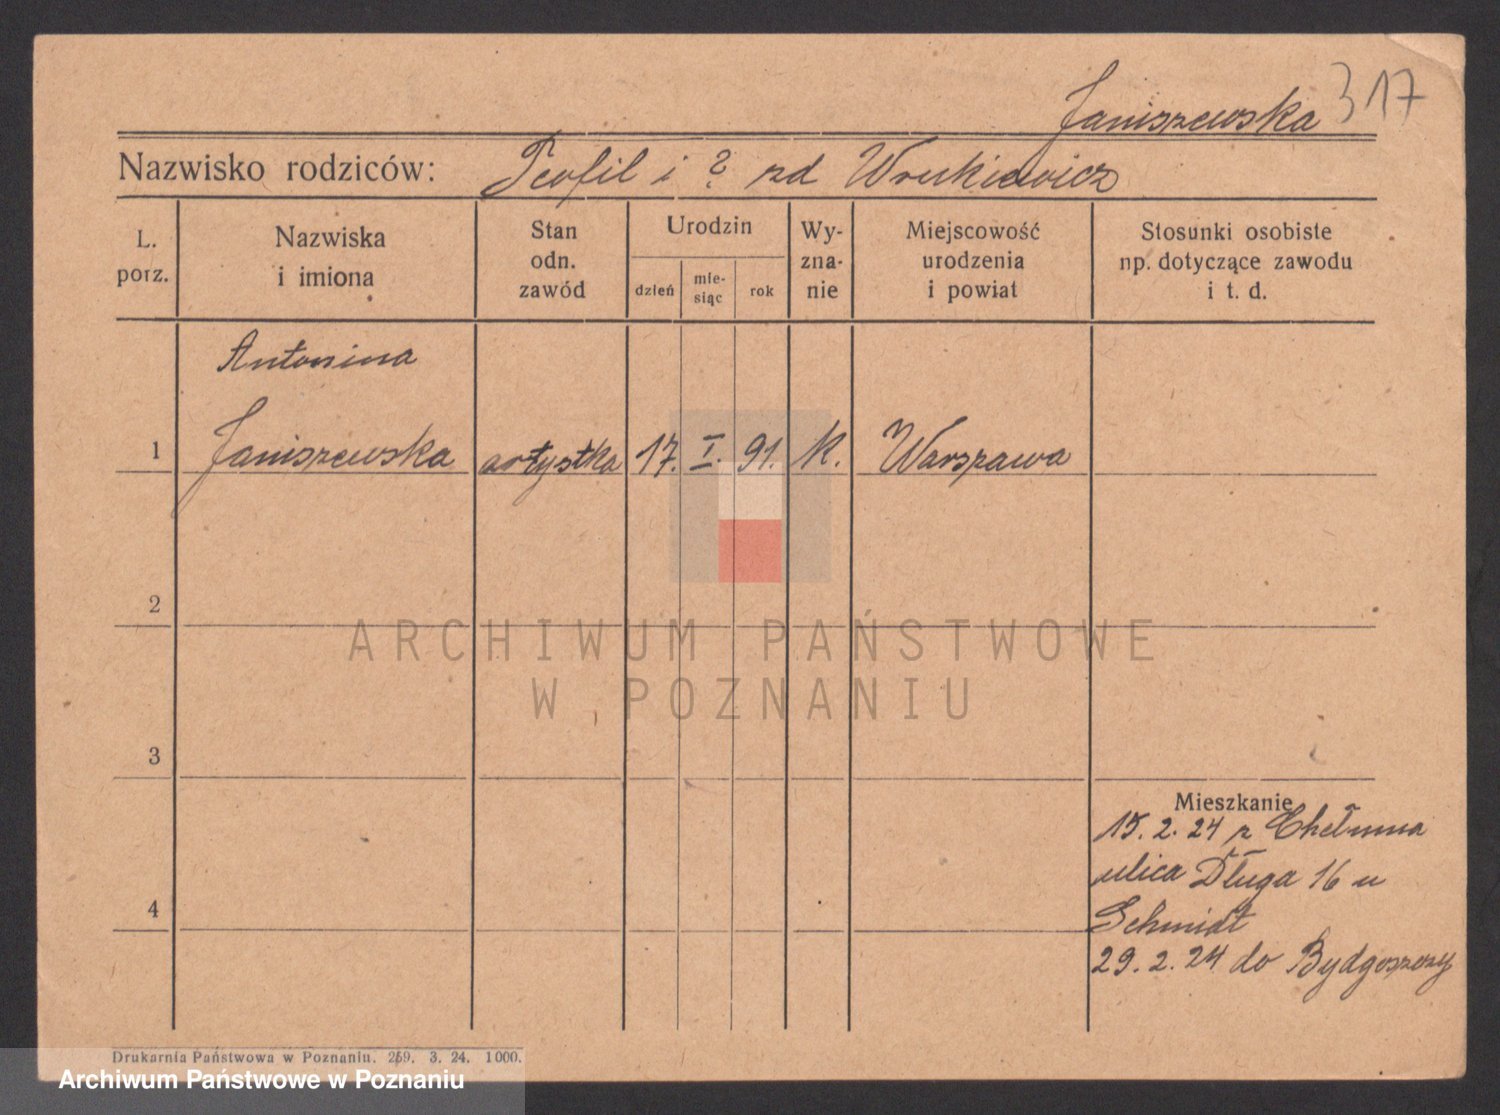 Janiszewska 317
Nazwisko rodziców: Teofil i ? zd Wrukiewicz
L. porz.
Nazwiska i imiona
Stan odn. zawód
Urodzin
dzień
mie-siąc
rok
Wy-zna-nie
Miejscowość urodzenia i powiat
Stosunki osobiste np. dotyczące zawodu i t. d.
Antonina
1 Janiszewska artystka 17. I. 91. k. Warszawa
2
ARCHIWUM PAŃSTWOWE
W POZNANIU
3
Mieszkanie
15. 2. 24 z Chełmna
ulica Długa 16 u
4
Schmidt
29. 2. 24 do Bydgoszczy
Drukarnia Państwowa w Poznaniu. 259. 3. 24. 1000.
Archiwum Państwowe w Poznaniu